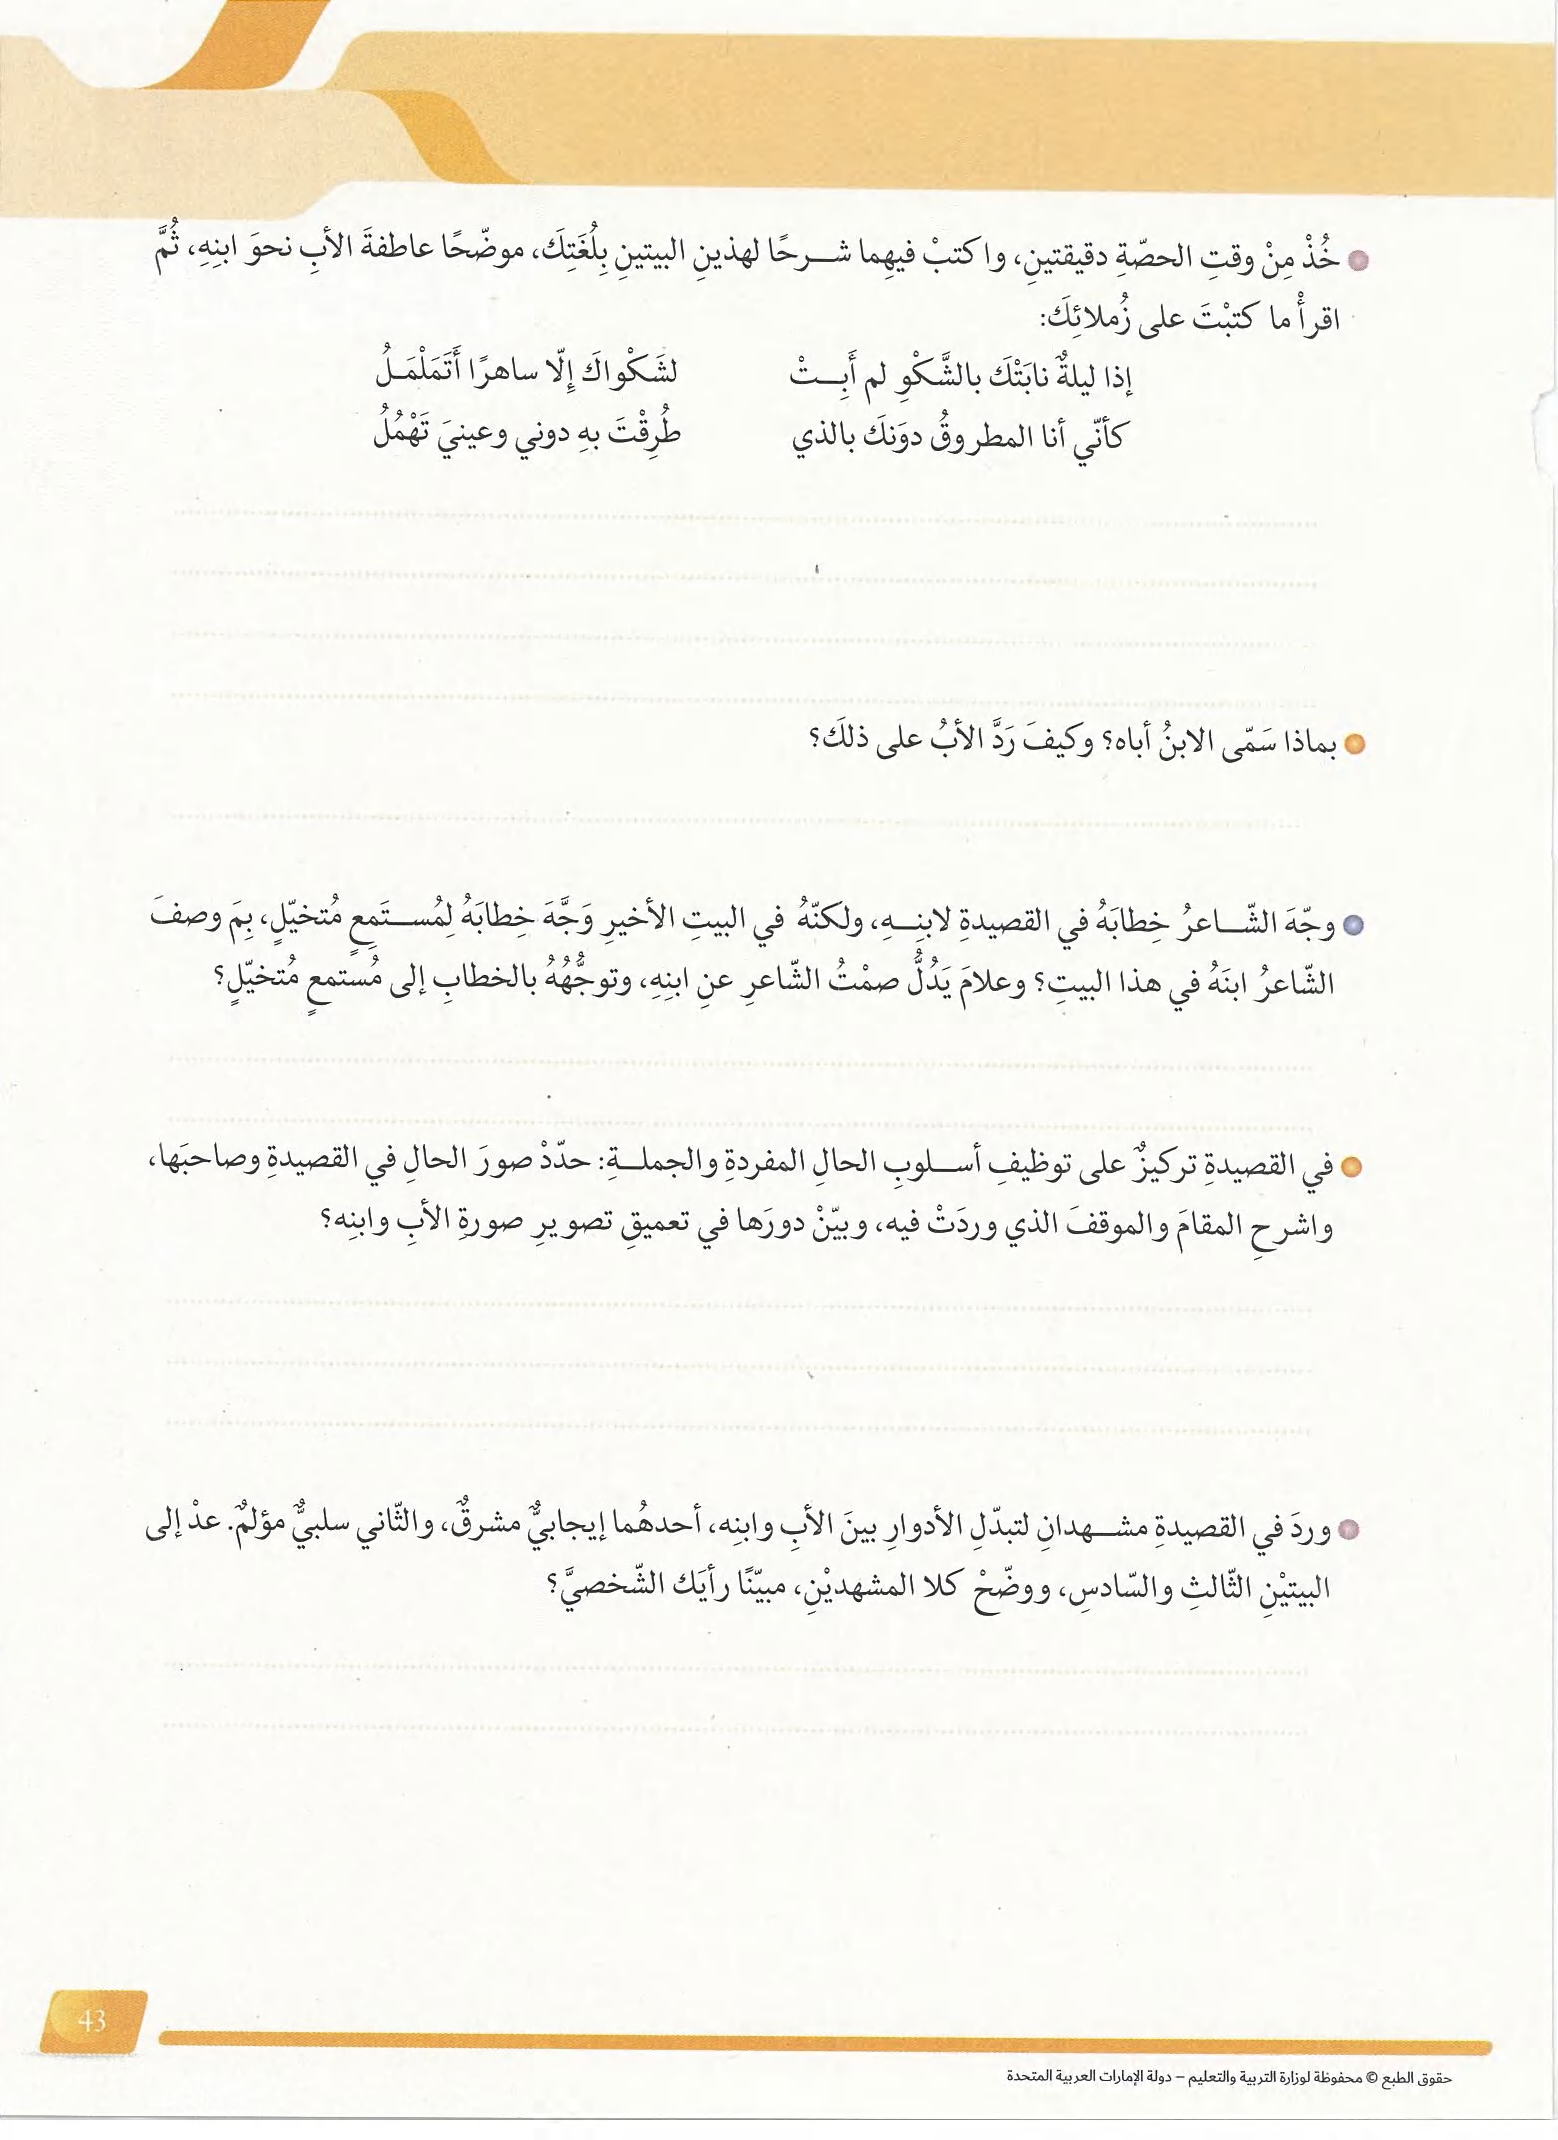 خُذْ مِنْ وقتِ الحصّةِ دقيقتينِ، واكتبْ فيهِما شـــرحًا لهذينِ البيتينِ بِلُغَتِكَ، موضّحًا عاطفةَ الأبِ نحوَ ابنِهِ، ثُمَّ
اقرأْ ما كتبْتَ على زُملائِكَ:
إذا ليلةٌ نابَتْكَ بالشَّكْوِ لم أَبِـــتْ لشَكْواكَ إِلّا ساهرًا أَتَمَلْمَـلُ
كأنّي أنا المطروقُ دوَنكَ بالذي طُرِقْتَ بهِ دوني وعينيَ تَهْمُلُ
بماذا سَمّى الابنُ أباه؟ وكيفَ رَدَّ الأبُ على ذلكَ؟
وجّهَ الشّـــاعرُ خِطابَهُ في القصيدةِ لابنِـــهِ، ولكنّهُ في البيتِ الأخيرِ وَجَّهَ خِطابَهُ لِمُســـتَمِعٍ مُتخيّلٍ، بِمَ وصفَ
الشّاعرُ ابنَهُ في هذا البيتِ؟ وعلامَ يَدُلُّ صمْتُ الشّاعرِ عنِ ابنِهِ، وتوجُّهُهُ بالخطابِ إلى مُستمعٍ مُتخيّلٍ؟
في القصيدةِ تركيزٌ على توظيفِ أســـلوبِ الحالِ المفردةِ والجملـــةِ: حدّدْ صورَ الحالِ في القصيدةِ وصاحبَها،
واشرحِ المقامَ والموقفَ الذي وردَتْ فيه، وبيّنْ دورَها في تعميقِ تصويرِ صورةِ الأبِ وابنِه؟
وردَ في القصيدةِ مشـــهدانِ لتبدّلِ الأدوارِ بينَ الأبِ وابنِه، أحدهُما إيجابيٌّ مشرقٌ، والثّاني سلبيٌّ مؤلمٌ. عدْ إلى
البيتيْنِ الثّالثِ والسّادسِ، ووضّحْ كلا المشهديْنِ، مبيّنًا رأيَك الشّخصيَّ؟
43
حقوق الطبع © محفوظة لوزارة التربية والتعليم – دولة الإمارات العربية المتحدة